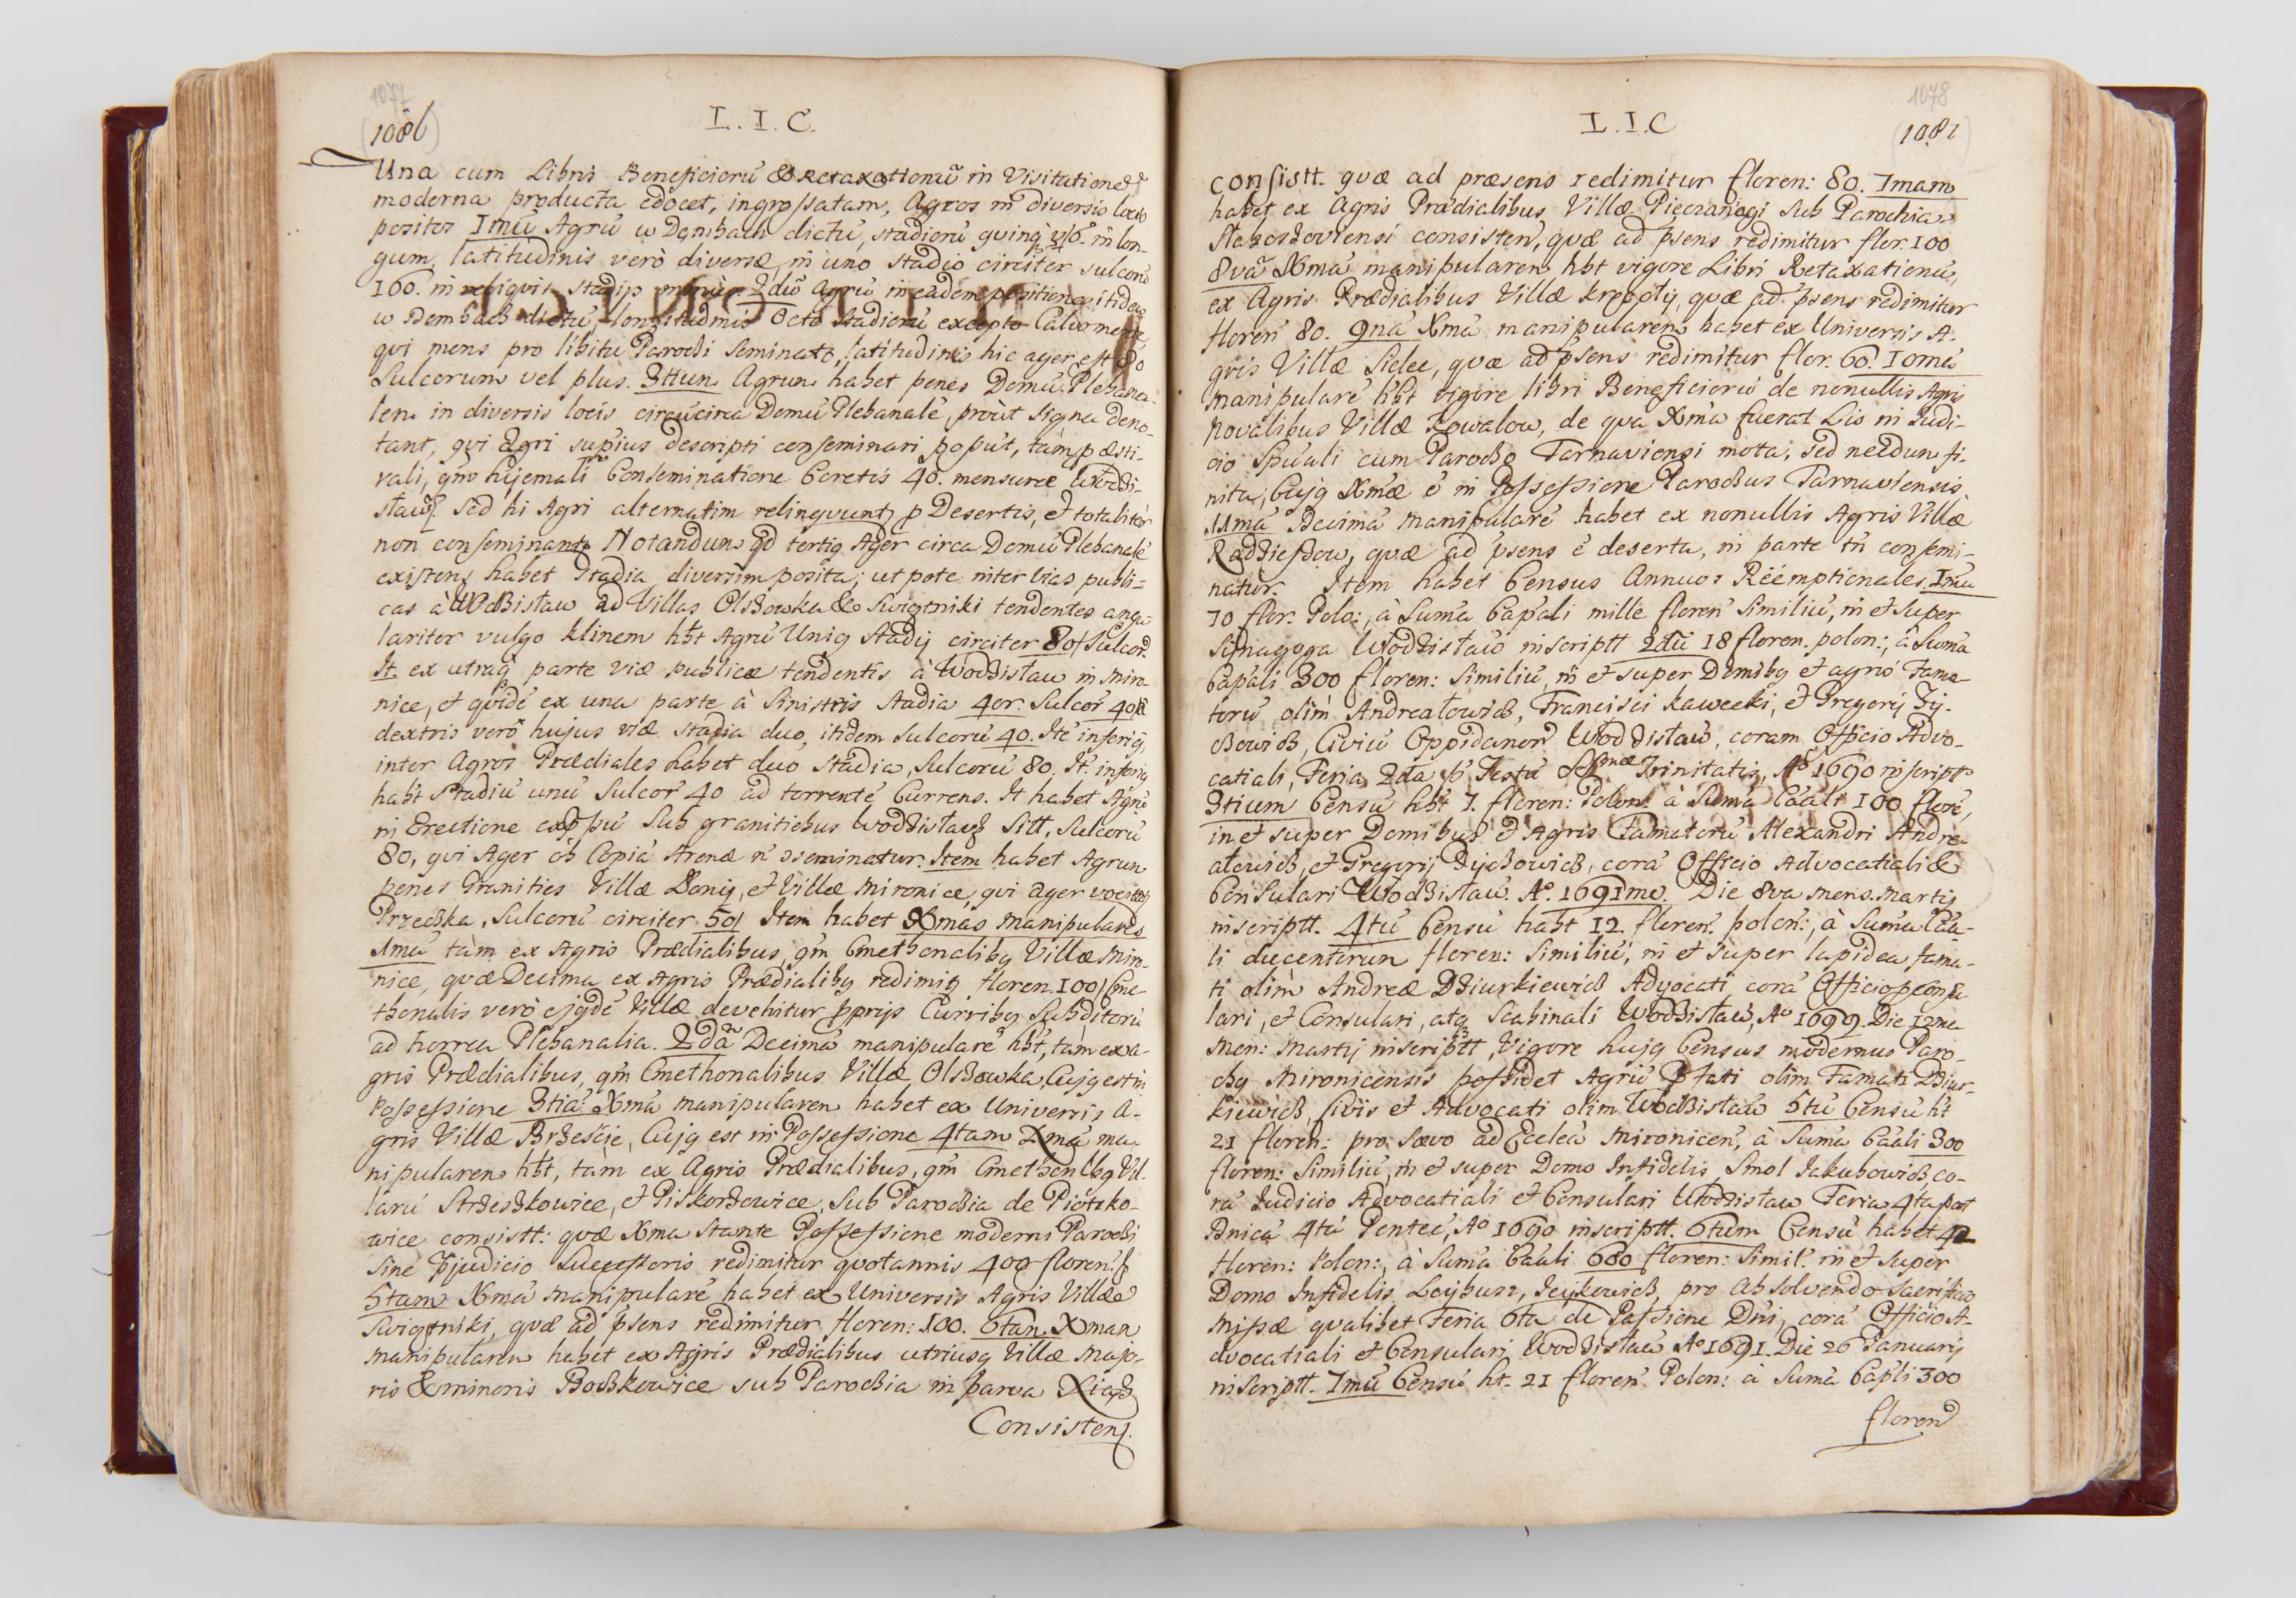 1077
1080
L. I. C.
Una cum Libris Beneficiorũ & Retaxationũ in Visitatione
moderna producta edocet, ingrossatam, Agros in diversis locis
positos Imũ Agrũ w Dembach dictũ, stadiorũ in lon-
gum, latitudinis verò diversæ, in uno stadio circiter sulcorũ
160. in reliquis stadijs minùs. 2dũ Agrũ in eadem positione itidem
w Dembach dictũ, longitudinis Octo Stadiorũ excepto Calvo monte,
qui mons pro libitu Parochi Seminatr, latitudinis hic ager est 80
Sulcorum vel plus. 3tium Agrum habet penes Domũ Plebana-
lem in diversis locis circũcirca Domũ Plebanalẽ, proùt Signa deno-
tant, qui Agri supius descripti conseminari possũt, tàm pœsti-
vali, qm̃ hyemali Conseminatione Coretis 40. mensuræ Wodzi-
slaw. Sed hi Agri alternatim relinquuntr p Desertis, et totalitèr
non conseminantr Notandum qd tertig Ager circa Domũ Plebanalẽ
existens habet Stadia diversim posita, ut pote inter vias publi-
cas à Wodzislaw ad Villas Olszowka & Swiętniki tendentes angu-
lariter vulgo klinem hbt Agrũ Unig Stadij circiter 80 Sulcor.
It. ex utraq parte viæ publicæ tendentis à Wodzislaw in Miro-
nice, et quidẽ ex una parte à Sinistris Stadia 4or. Sulcor 40 à
dextris verò hujus viæ stadia duo, itidem Sulcorũ 40. Itẽ inferig,
inter Agros Prædiales habet duo Stadia, Sulcorũ 80. It. inferig
habt Stadiũ unũ Sulcor 40 ad torrentẽ Currens. It habet Agrũ
in Erectione exppũ Sub granitiebus Wodzislaw Sitt, Sulcorũ
80, qui Ager ob Copiã Arenæ ñ sseminatur. Item habet Agrum
penes Granities Villæ Lonij, et Villæ Mironice, qui ager vocitatr
Przeczka, Sulcorũ circiter 50 Item habet Xmas manipulares
1mã tàm ex Agris Prædialibus, qm̃ Cmethonalibg Villæ Miro-
nice, quæ Decima ex Agris Prædialibg redimitr floren. 100 Cme-
thonalis verò ejgdẽ Villæ devehitur pprijs Curribg Subditorũ
ad horrea Plebanalia. 2dã Decimã manipularẽ hbt, tàm ex a-
gris Prædialibus, qm̃ Cmethonalibus Villæ Olszowka, Cujg est in
Possessione 3tiã Xmã manipularem habet ex Universis A-
gris Villæ Brzeście, Cujg est in Possessione 4tam Xmã ma-
nipularem hbt, tàm ex Agris Prædialibus, qm̃ Cmethonlibg Vil-
larũ Strzeszkowice, et Piskorzowice, Sub Parochia de Piotrko-
wice consistt: quæ Xma stante Possessione moderni Parochi
Sine Pjudicio Successoris redimitur quotannis 400 floren.
5tam Xmã manipularẽ habet ex Universis Agris Villæ
Swiętniki, quæ ad psens redimitur floren: 100. 6tam. Xmam
manipularem habet ex Agris Prædialibus utriusq Villæ Majo-
ris & minoris Boczkowice sub Parochia in parva Xiąz
Consistens.
1078
L. I. C
1081
consistt. quæ ad præsens redimitur floren: 80. 7mam
habet ex Agris Prædialibus Villæ Pieczanogi Sub Parochia
Slaboszoviensi consisten, quæ ad psens redimitur flor. 100
8vã Xmã manipularem hbt vigore Libri Retaxationũ,
ex Agris Prædialibus Villæ krępoly, quæ ad psens redimitur
floren 80. 9nã Xmã manipularem habet ex Universis A-
gris Villæ Sielec, quæ ad psens redimitur flor. 60. 10mã
manipularẽ hbt vigore libri Beneficiorũ de nonullis Agris
Novalibus Villæ Kowalow, de qua Xma fuerat Lis in Judi-
cio Spũali cum Parocho Tarnaviensi mota, sed necdum fi-
nita, Cujg Xmæ ẽ in Possessione Parochus Tarnaviensis.
11mã Decimã manipularẽ habet ex nonullis Agris Villæ
quæ ad psens ẽ deserta, in parte tñ consemi-
natur. Item habet Census Annuos Reemptionales Imũ
70 flor. Polo:, à Suma Capali mille floren Similiũ, in et super
Sinagoga Wodzislaw inscriptt 2dũ 18 floren. polon:, à Suma
Capali 300 floren: Similiũ, in et super Domibg et agris Fama-
torũ olim Andreatowicz, Francisci kawecki, et Gregorij Zy-
chowicz, Civiũ Oppidanor Wodzislaw, coram Officio Advo-
catiali, Feria 2da p Festũ SSmæ Trinitatis, Ao 1690 inscript.
3tium Censũ hbt 7. floren: Polon: à Suma Caali 100 florẽ,
in et super Domibus et Agris Famatorũ Alexandri Andre-
atowicz, et Gregorij Zychowicz, corã Officio Advocatiali &
Consulari Wodzislaw. Ao. 1691mo. Die 8va mens. Martij
inscriptt. 4tũ Censũ habt 12 floren. polon:, à Suma Caa-
li ducentorum floren: Similiũ, in et super lapidea fama-
ti olim Andreæ Dziurkiewicz Advocati corã Officio pconsu-
lari, et Consulari, atq Scabinali Wodzislaw, Ao 1699. Die 12ma
Men: Martij inscriptt, Vigore hujg Census modernus Paro-
chg Mironicensis possidet Agrũ Pfati olim Famati Dziur-
kiewicz, Civis et Advocati olim Wodzislaw 5tũ Censũ ht
21 floren: pro Sævo ad Eccleã Mironicen, à Suma Caali 300
floren: Similiũ, in et super Domo Infidelis Smol Jakubowicz, co-
rã Judicio Advocatiali et Consulari Wodzislaw Feria 4ta post
Dnicã 4tã Pentec, Ao 1690 inscriptt. 6tum Censũ habet 42
floren: Polon:, à Suma Caali 600 floren: Simil. in et super
Domo Infidelis Leybusz, Jeykowicz, pro absolvendo Sacrificio
Missæ qualibet Feria 6ta de Passione Dni, corã Officio A-
dvocatiali et Consulari Wodzislaw Ao 1691. Die 26 Januarij
inscriptt. 7mũ Censũ ht. 21 floren Polon: à Suma Capli 300
floren